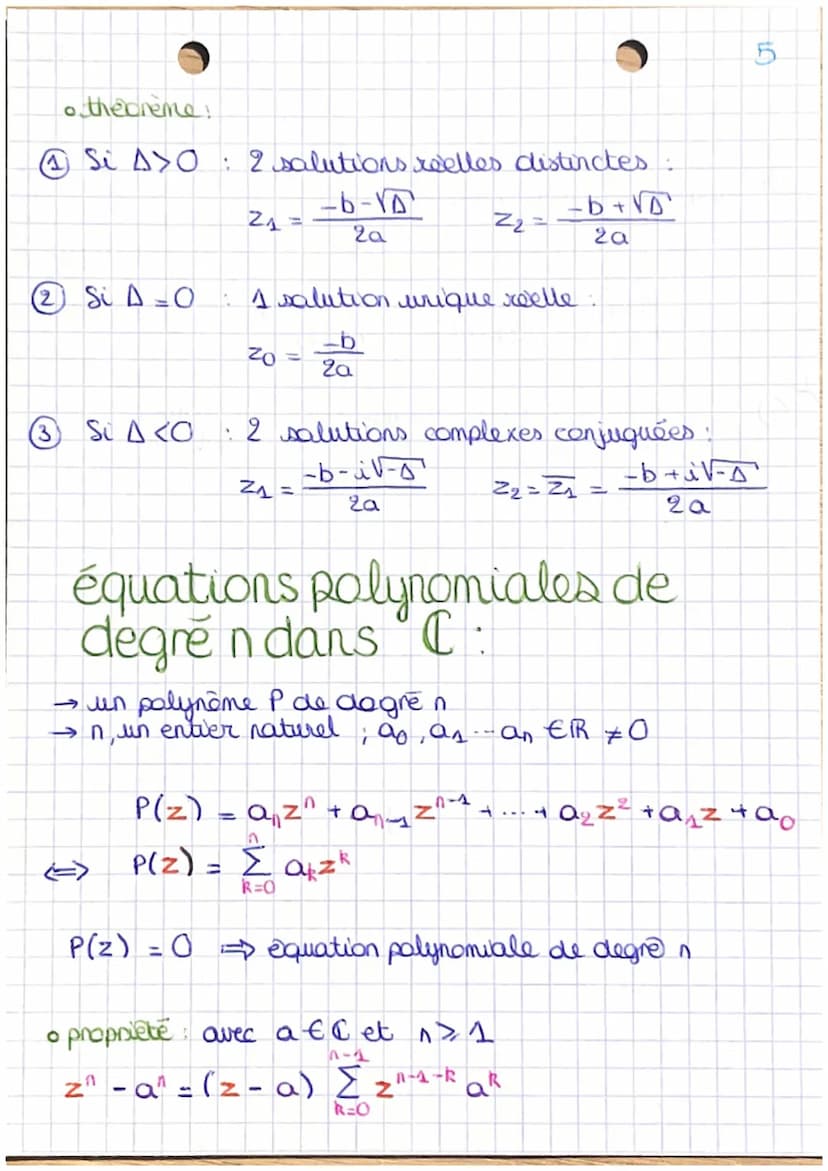 5
o théorème :
① Si Δ>0 : 2 solutions réelles distinctes :
z₁ = (-b-√Δ)/2a z₂ = (-b+√Δ)/2a
② Si Δ=0 : 1 solution unique réelle :
z₀ = -b/2a
③ Si Δ<0 : 2 solutions complexes conjuguées :
z₁ = (-b-i√-Δ)/2a z₂ = z̅₁ = (-b+i√-Δ)/2a
équations polynomiales de
degré n dans ℂ :
→ un polynôme P de dagré n
→ n, un entier naturel ; a₀, a₁ ... aₙ ∈ ℝ ≠ 0
P(z) = aₙzⁿ + aₙ₋₁zⁿ⁻¹ + ... + a₂z² + a₁z + a₀
⇔ P(z) = Σₖ₌₀ⁿ aₖzᵏ
P(z) = 0 ⇒ équation polynomiale de degré n
o propriété : avec a ∈ ℂ et n ⩾ 1
zⁿ - aⁿ = (z - a) Σₖ₌₀ⁿ⁻¹ zⁿ⁻¹⁻ᵏ aᵏ